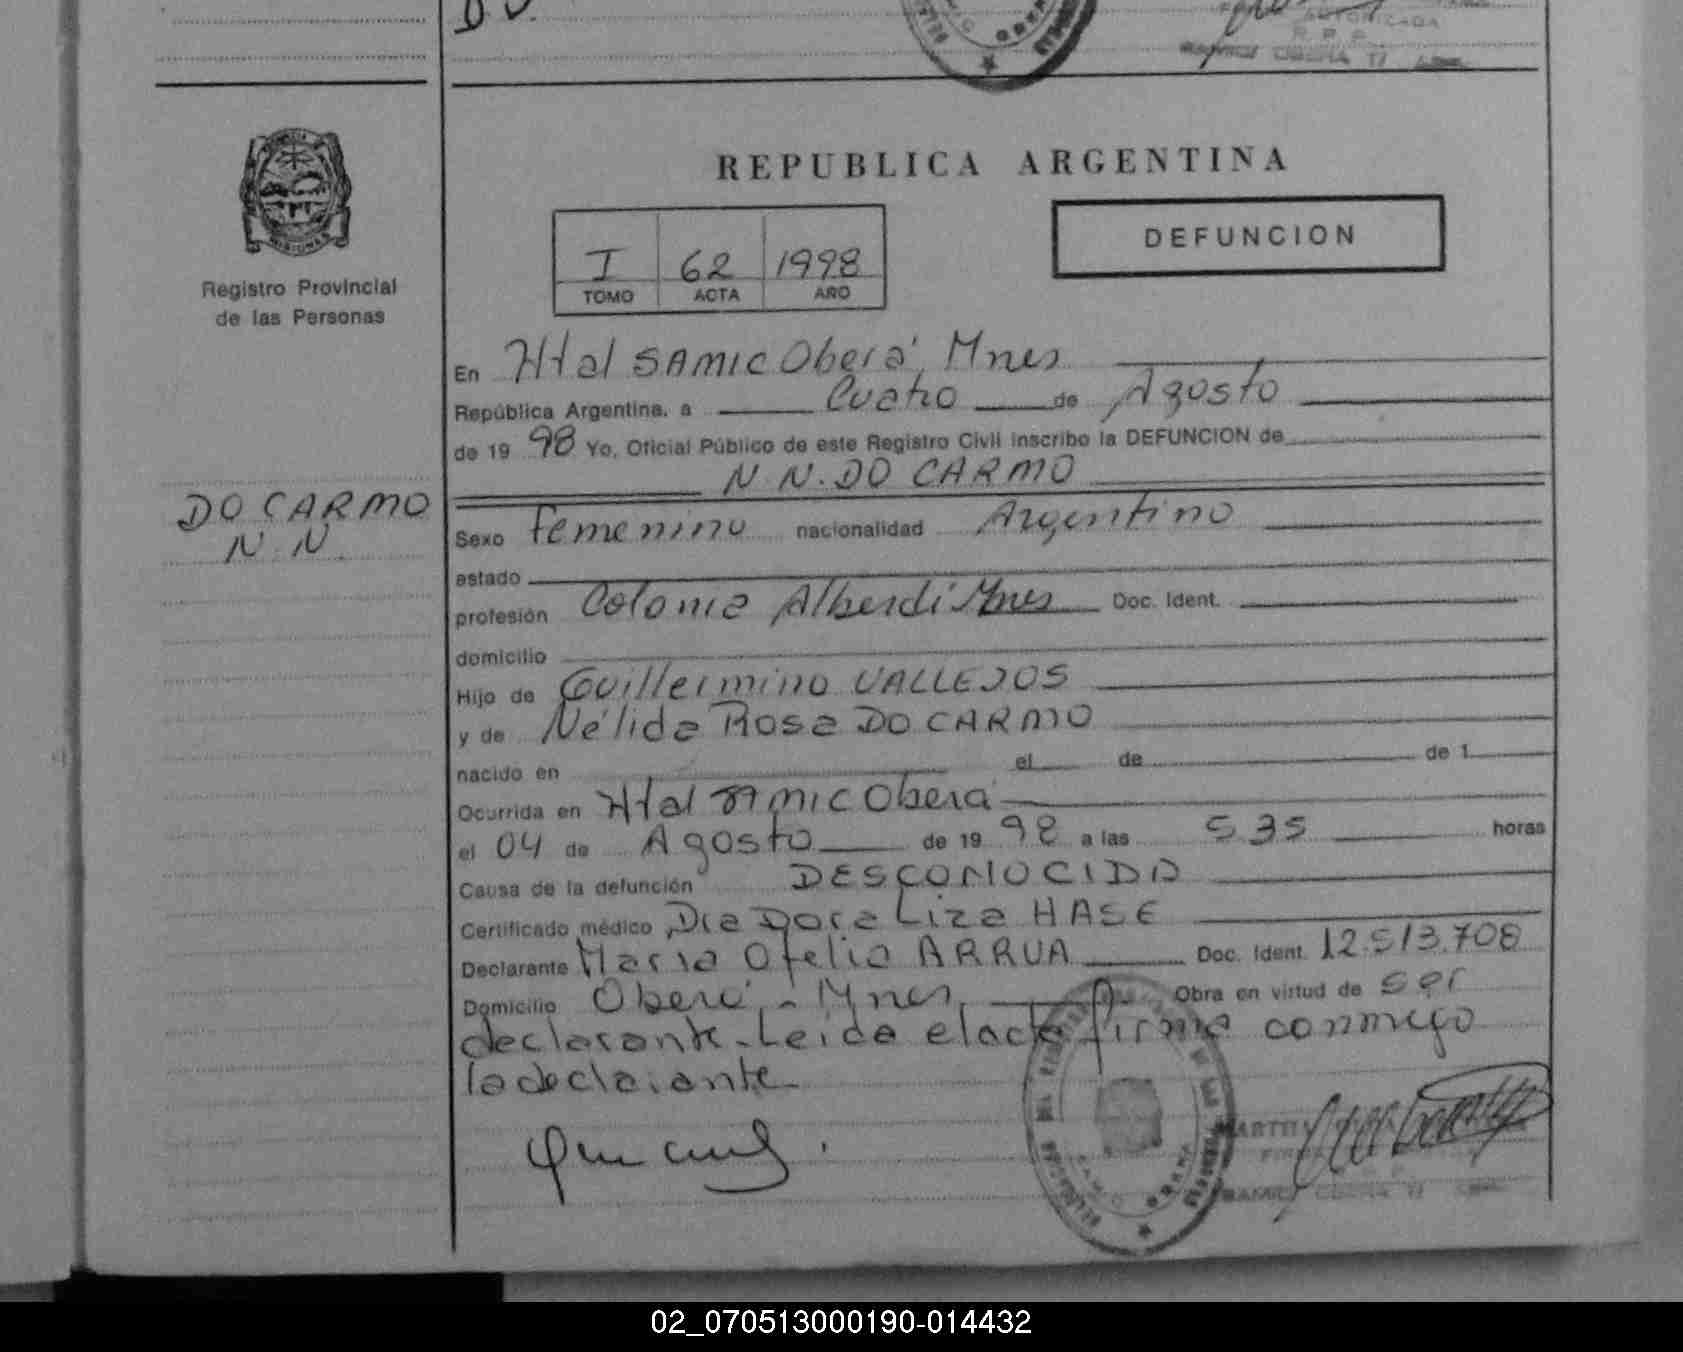 D.V.
AUTORIZADA
R. P. P.
REPUBLICA ARGENTINA
I 62 1998
TOMO ACTA AÑO
DEFUNCION
MISIONES
Registro Provincial
de las Personas
DO CARMO
N. N.
En Htal SAMIC Oberá, Mnes
República Argentina, a Cuatro de Agosto
de 19 98 Yo, Oficial Público de este Registro Civil inscribo la DEFUNCION de
N. N. DO CARMO
Sexo Femenino nacionalidad Argentino
estado
profesión Colonia Alberdi Mnes Doc. Ident.
domicilio
Hijo de Guillermino VALLEJOS
y de Nélida Rosa DO CARMO
nacido en el de de 1
Ocurrida en Htal SAMIC Oberá
el 04 de Agosto de 19 98 a las 5 35 horas
Causa de la defunción DESCONOCIDA
Certificado médico Dra Dora Liza HASE
Declarante Maria Ofelia ARRUA Doc. Ident. 12.513.708
Domicilio Oberá - Mnes Obra en virtud de ser
declarante. Leida el acta firma conmigo
la declarante
02_070513000190-014432